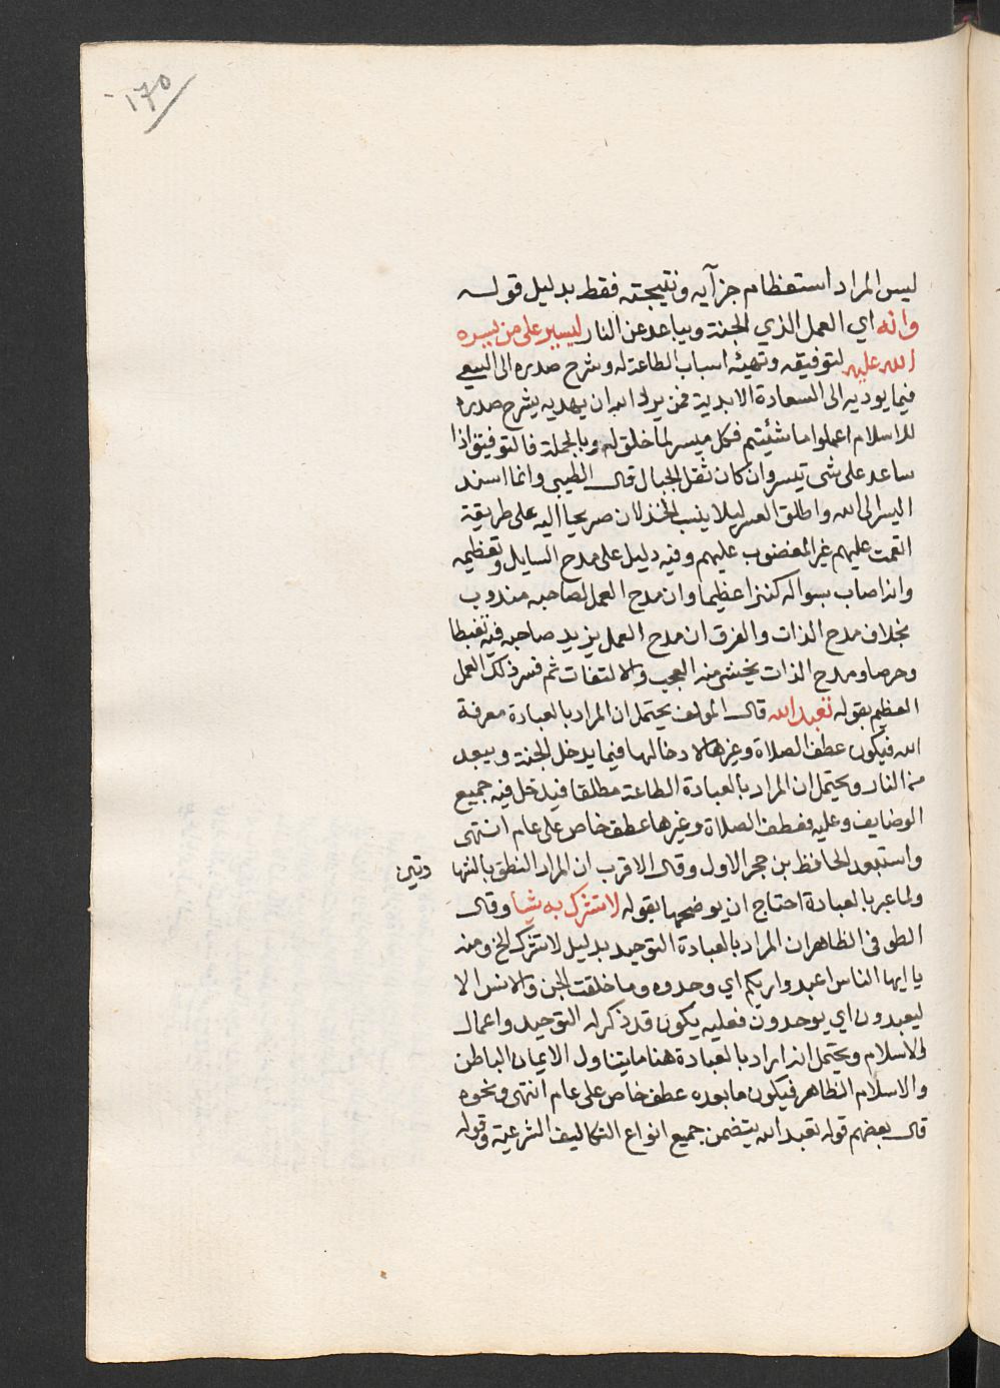 ١٧٥
ليس المراد استعظام جزآيه ونتيجته فقط بدليل قوله
وانه اي العمل الذي الجنة ويباعد عن النار ليسير على من يسره
الله عليه لتوفيقه وتهيئه اسباب الطاعة له وشرح صدره الى السعي
فيما يوديه الى السعادة الابدية فمن يرد الله ان يهديه يشرح صدره
للاسلام اعملوا ما شئيتم فكل ميسر لما خلق له وبالجملة فالتوفيق اذا
ساعد على شي تيسر وان كان ثقل الجبال قال الطيبي وانما اسند
اليسر الى الله واطلق العسر ليلا ينسب الخذلان صريحا اليه على طريقة
انعمت عليهم غير المغضوب عليهم وفيه دليل على مدح السايل وتعظيمه
وانه اصاب بسواله كنزا عظيما وان مدح العمل لصاحبه مندوب
بخلاف مدح الذات والفرق ان مدح العمل يزيد صاحبه فيه تغبطا
وحرصا ومدح الذات يخشى منه العجب والالتفات ثم فسر ذلك العمل
العظيم بقوله تعبد الله قال المولف يحتمل ان المراد بالعبادة معرفة
الله فيكون عطف الصلاة وغيرها لادخالها فيما يدخل الجنة ويبعد
من النار ويحتمل ان المراد بالعبادة الطاعة مطلقا فيدخل فيه جميع
الوضايف وعليه فعطف الصلاة وغيرها عطف خاص على عام انتهى
واستبعد الحافظ بن حجر الاول وقال الاقرب ان المراد النطق بالشها دتين
ولما عبر بالعبادة احتاج ان يوضحها بقوله لا تشرك به شيأ وقال
الطوفي الظاهر ان المراد بالعبادة التوحيد بدليل لا تشرك الخ ومنه
يا ايها الناس اعبدوا ربكم اي وحدوه وما خلقت الجن والانس الا
ليعبدون اي يوحدون فعليه يكون قد ذكر له التوحيد واعمال
الاسلام ويحتمل انه اراد بالعبادة هنا ما يتناول الايمان الباطن
والاسلام الظاهر فيكون ما بعده عطف خاص على عام انتهى ونحوه
قال بعضهم قوله تعبد الله يتضمن جميع انواع التكاليف الشرعية وقوله